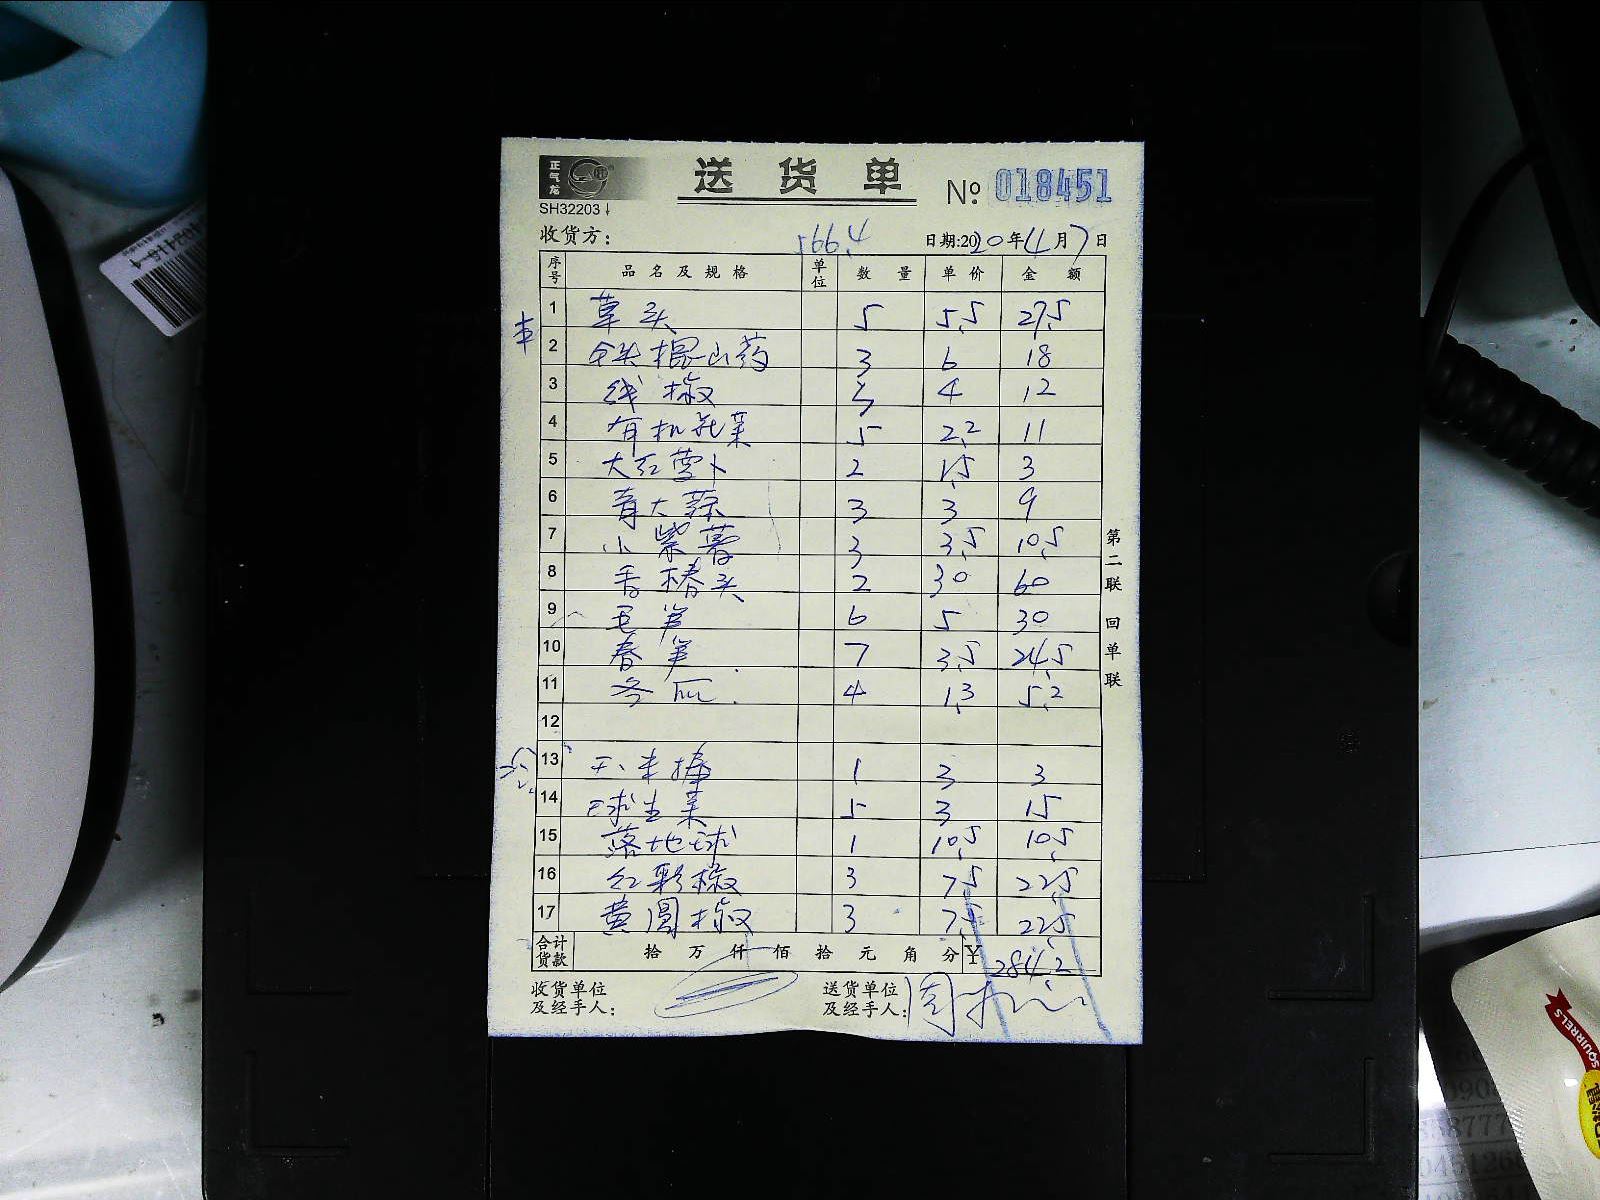 正气龙
送 货 单
№ 018451
SH32203
收货方: 566.4 日期:2020年4月7日
序号 品名及规格 单位 数量 单价 金额
1 草头 5 5.5 27.5
2 铁棍山药 3 6 18
3 线椒 3 4 12
4 有机花菜 5 2.2 11
5 大红萝卜 2 1.5 3
6 青大蒜 3 3 9
7 小紫薯 3 3.5 10.5
8 香椿头 2 30 60
9 毛笋 6 5 30
10 春笋 7 3.5 24.5
11 冬瓜 4 1.3 5.2
12
13 1 3 3
14 球生菜 5 3 15
15 落地球 1 10.5 10.5
16 红彩椒 3 7.5 22.5
17 黄圆椒 3 7.5 22.5
合计货款 拾 万 仟 佰 拾 元 角 分 ¥ 284.2
收货单位及经手人:
送货单位及经手人: 周
第二联 回单联
SQUIRRELS